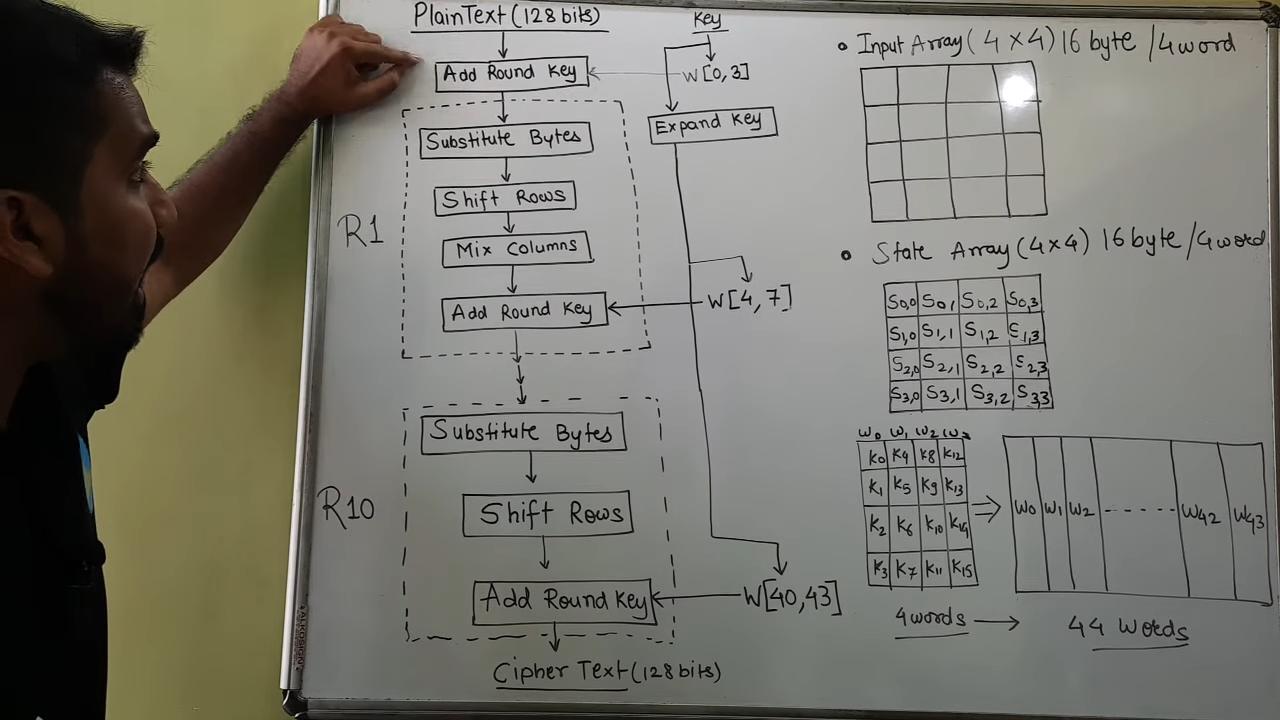 PlainText (128 bits)
Key
Add Round Key
W[0,3]
Expand Key
R1
Substitute Bytes
Shift Rows
Mix Columns
Add Round Key
W[4,7]
R10
Substitute Bytes
Shift Rows
Add Round Key
W[40,43]
Cipher Text (128 bits)
• Input Array (4×4) 16 byte /4 word
• State Array (4×4) 16 byte /4 word
S0,0 S0,1 S0,2 S0,3
S1,0 S1,1 S1,2 S1,3
S2,0 S2,1 S2,2 S2,3
S3,0 S3,1 S3,2 S3,3
W0 W1 W2 W3
K0 K4 K8 K12
K1 K5 K9 K13
K2 K6 K10 K14
K3 K7 K11 K15
⇒
W0 W1 W2 ------ W42 W43
4 words → 44 Words
ALKOSIGN